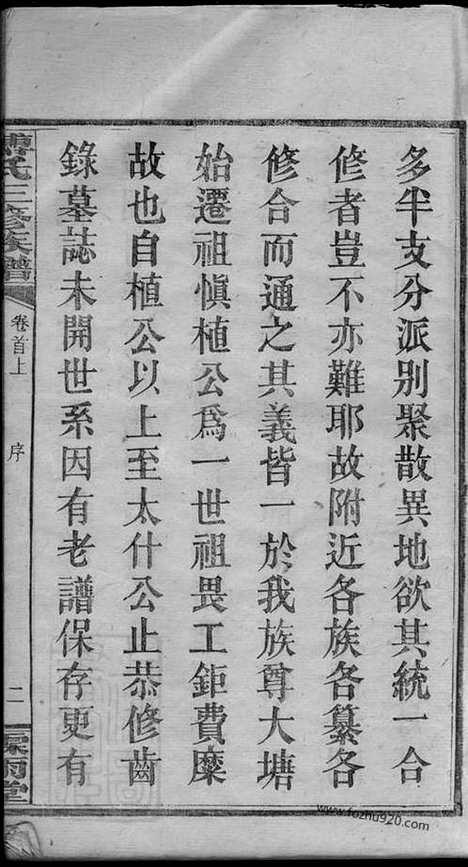 多半支分派別聚散異地欲其統一合
修者豈不亦難耶故附近各族各纂各
修合而通之其義皆一於我族尊大塘
始遷祖愼植公爲一世祖畏工鉅費糜
故也自植公以上至太什公止恭修齒
錄墓誌未開世系因有老譜保存更有
氏三修族譜
卷首上
序
二
霖雨堂
www.fozhu920.com